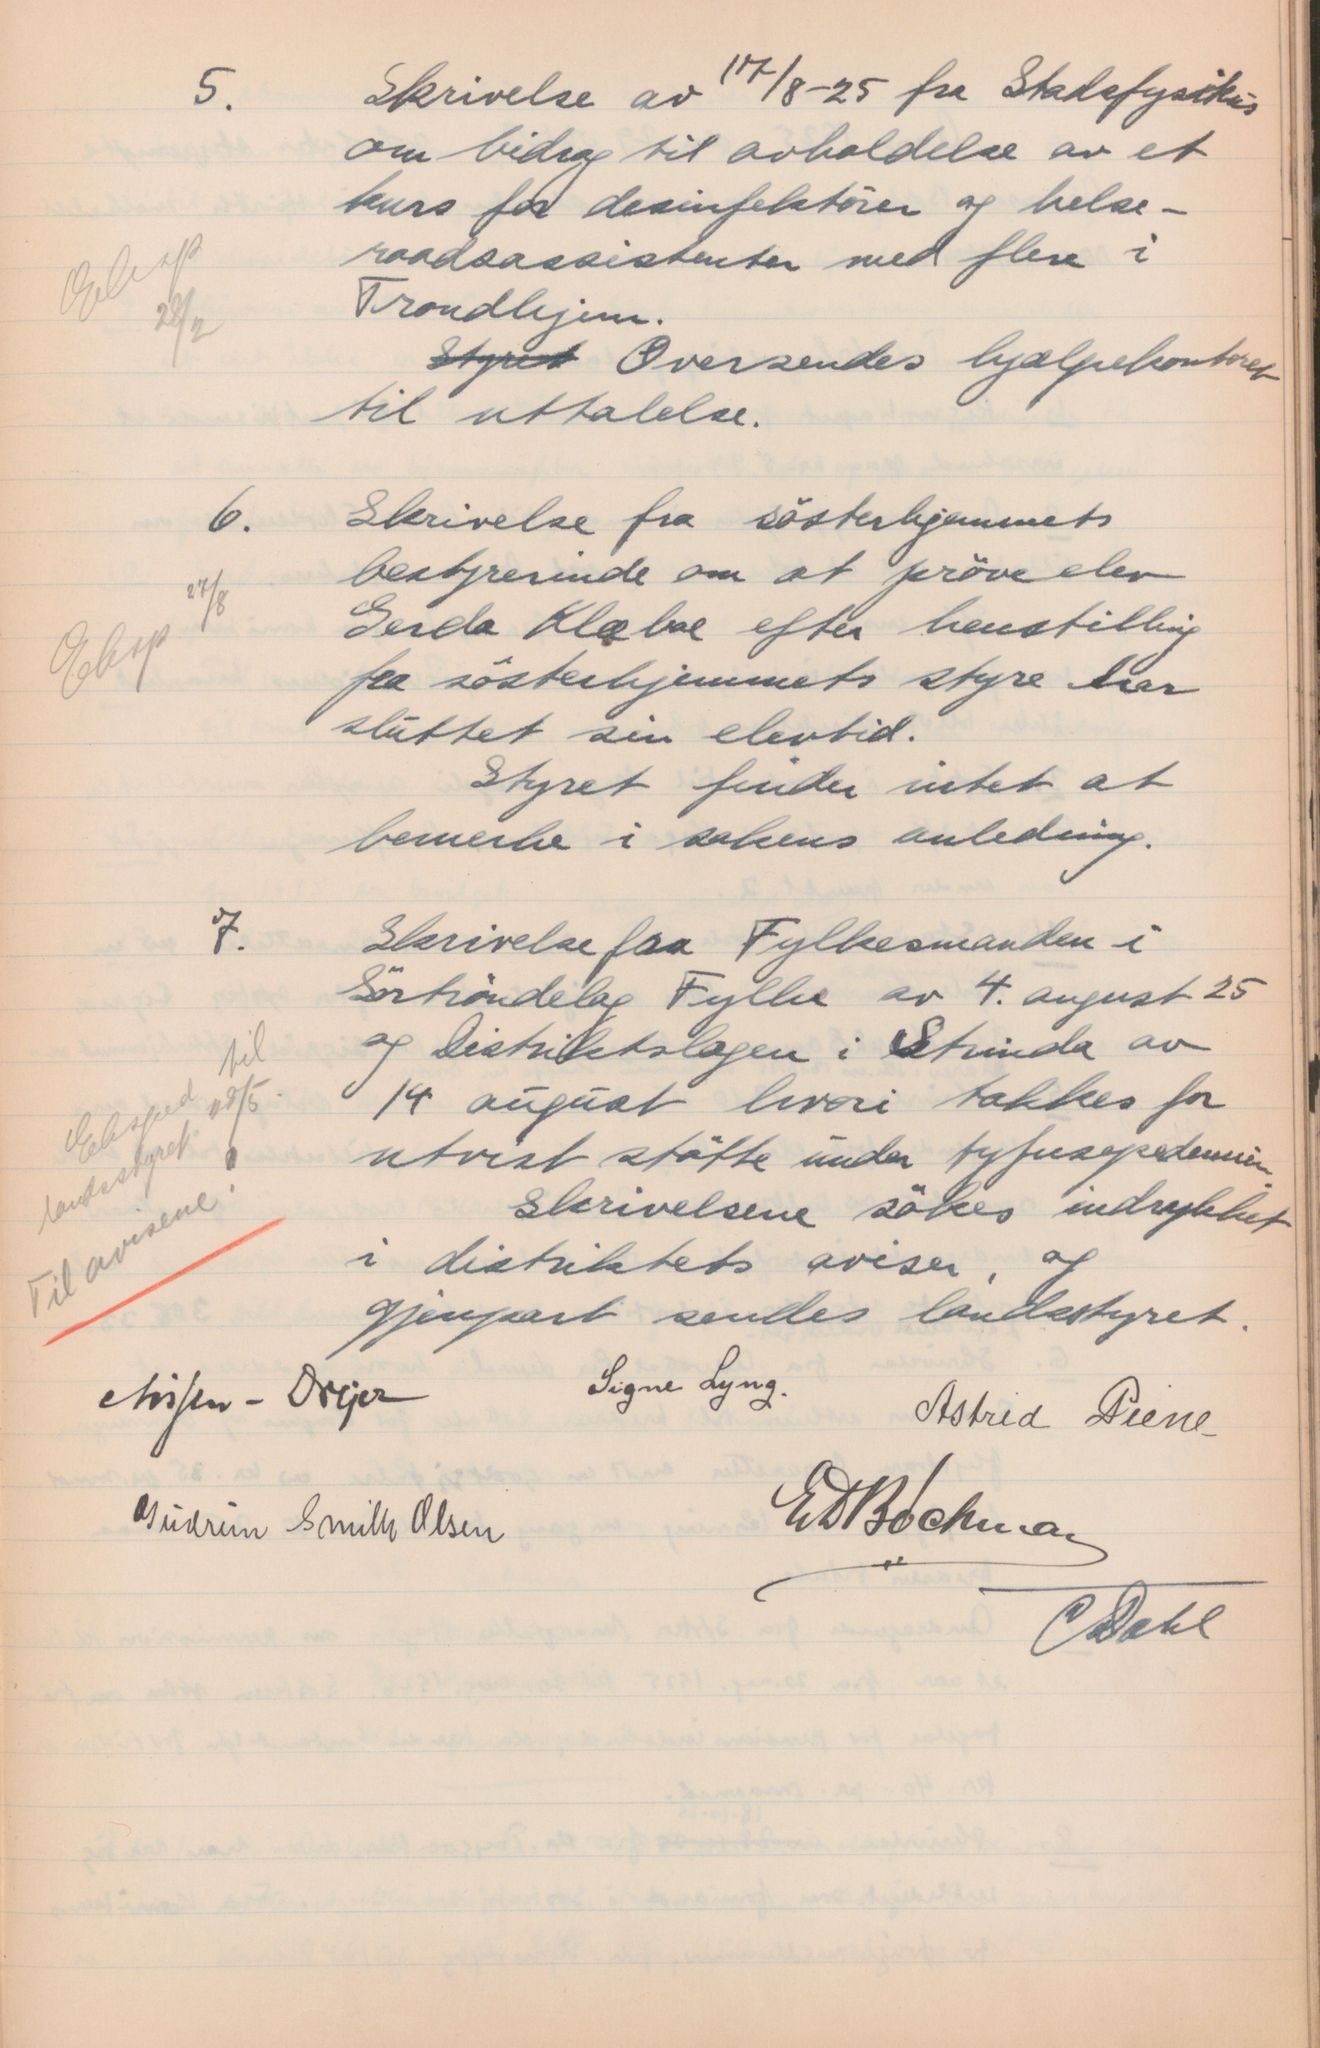 5. Skrivelse av 17/8-25 fra Stadsfysikus
om bidrag til avholdelse av et
kurs for desinfektörer og helse-
raadsassistenter med flere i
Trondhjem.
Eksp
28/2
Styret Oversendes hjælpekontoret
til uttalelse.
6. Skrivelse fra sösterhjemmets
bestyrerinde om at pröveelev
27/8
Eksp
Gerda Klæboe efter henstilling
fra sösterhjemmets styre har
sluttet sin elevtid.
Styret finder intet at
bemerke i sakens anledning.
7. Skrivelse fra Fylkesmanden i
Sörtröndelag Fylke av 4. august 25
og Distriktslægen i Strinda av
14 august hvori takkes for
utvist stötte under tyfusepedemien.
Eksped til
landsstyret 28/5.
Til avisene!
Skrivelsene sökes indrykket
i distriktets aviser, og
gjenpart sendes landsstyret.
Signe Lyng.
Astrid Piene
Gudrun Emilk Olsen
E D Bøckman
C Dahl